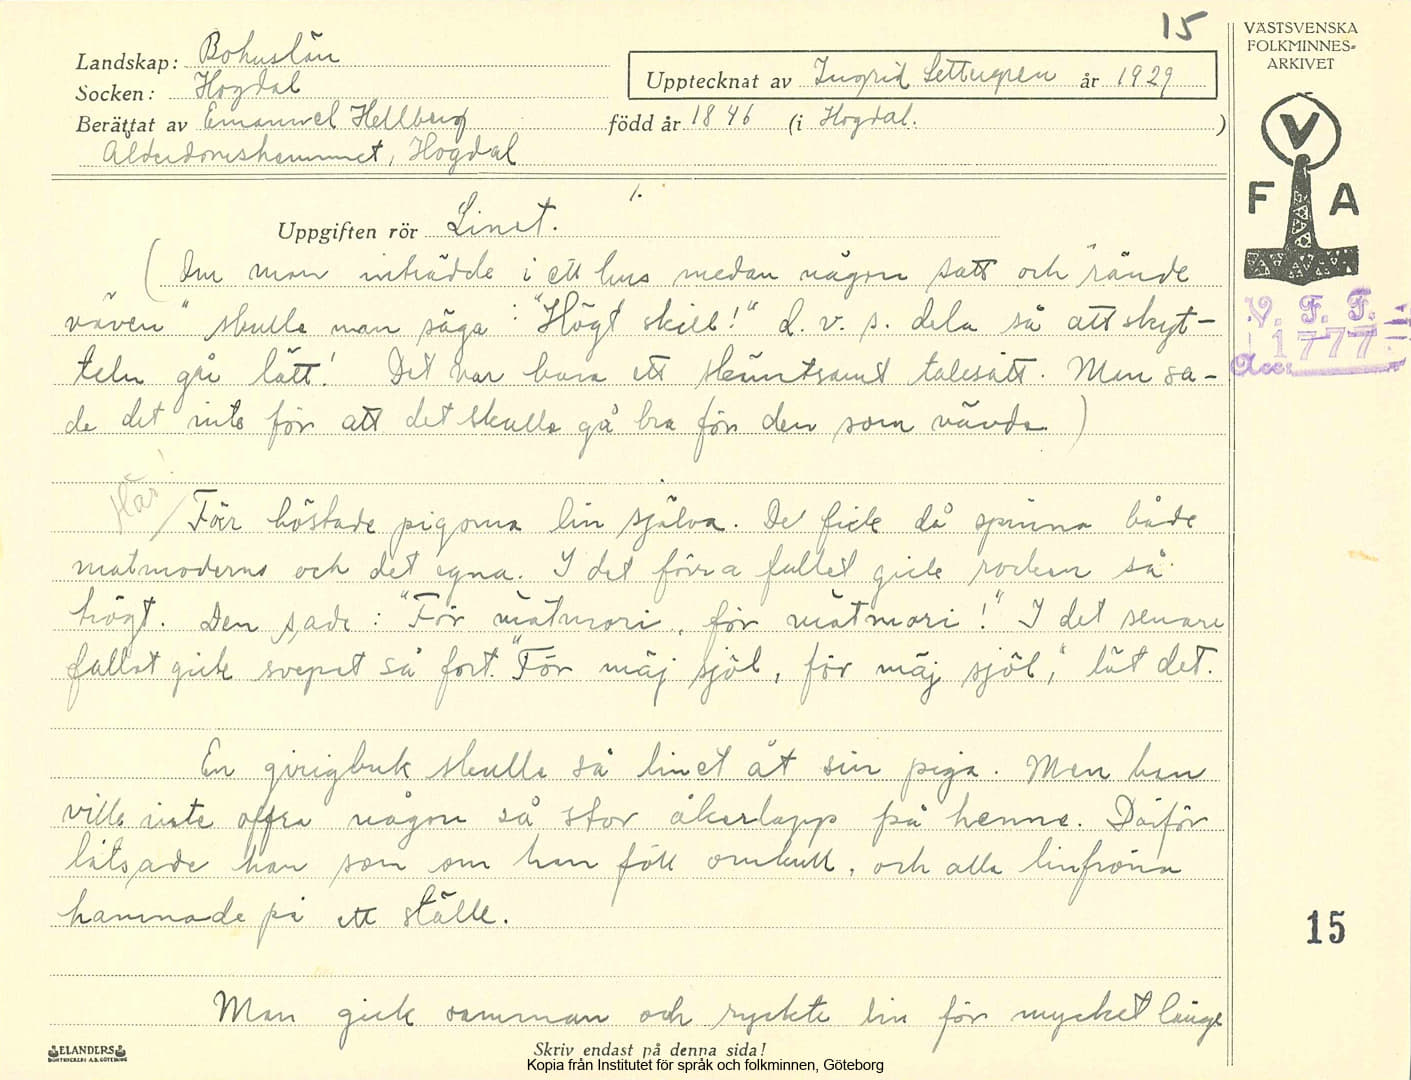 15
VÄSTSVENSKA
FOLKMINNES-
ARKIVET
Landskap: Bohuslän
Upptecknat av Ingrid Lettugren år 1929
Socken: Hogdal
Berättat av Emanuel Hellberg född år 1846 (i Hogdal.)
Ålderdomshemmet, Hogdal
V
F A
1.
Uppgiften rör Linet.
(Om man inträdde i ett hus medan någon satt och "rände
väven" skulle man säga: "Högt skill!" d. v. s. dela så att skyt-
teln går lätt! Det var bara ett skämtsamt talesätt. Man sa-
de det inte för att det skulle gå bra för den som vävde.)
V. F. F.
1777
Acc:
Här!
/ Förr höstade pigorna lin själva. De fick då spinna både
matmoderns och det egna. I det förra fallet gick rocken så
trögt. Den sade: "För matmori, för matmori!" I det senare
fallet gick svepet så fort. "För mäj sjöl, för mäj sjöl," lät det.
En girigbuk skulle så linet åt sin piga. Men han
ville inte offra någon så stor åkerlapp på henne. Därför
låtsade han som om han föll omkull, och alla linfröna
hamnade på ett ställe.
15
Man gick samman och ryckte lin för mycket länge
ELANDERS
BOKTRYCKERI A.B. GÖTEBORG
Skriv endast på denna sida!
Kopia från Institutet för språk och folkminnen, Göteborg